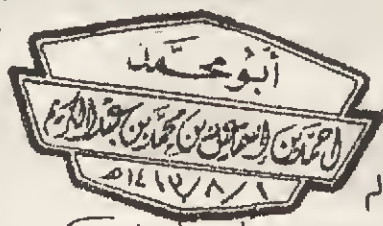 أبو محمد
احمد بن إسماعيل بن محمد بن عبد الكريم
١٤١٣/٨/١ هـ